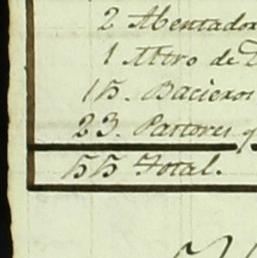 2 Abentador
1 Mtro de
15. Bacieros
23. Pastores q
55 Total.